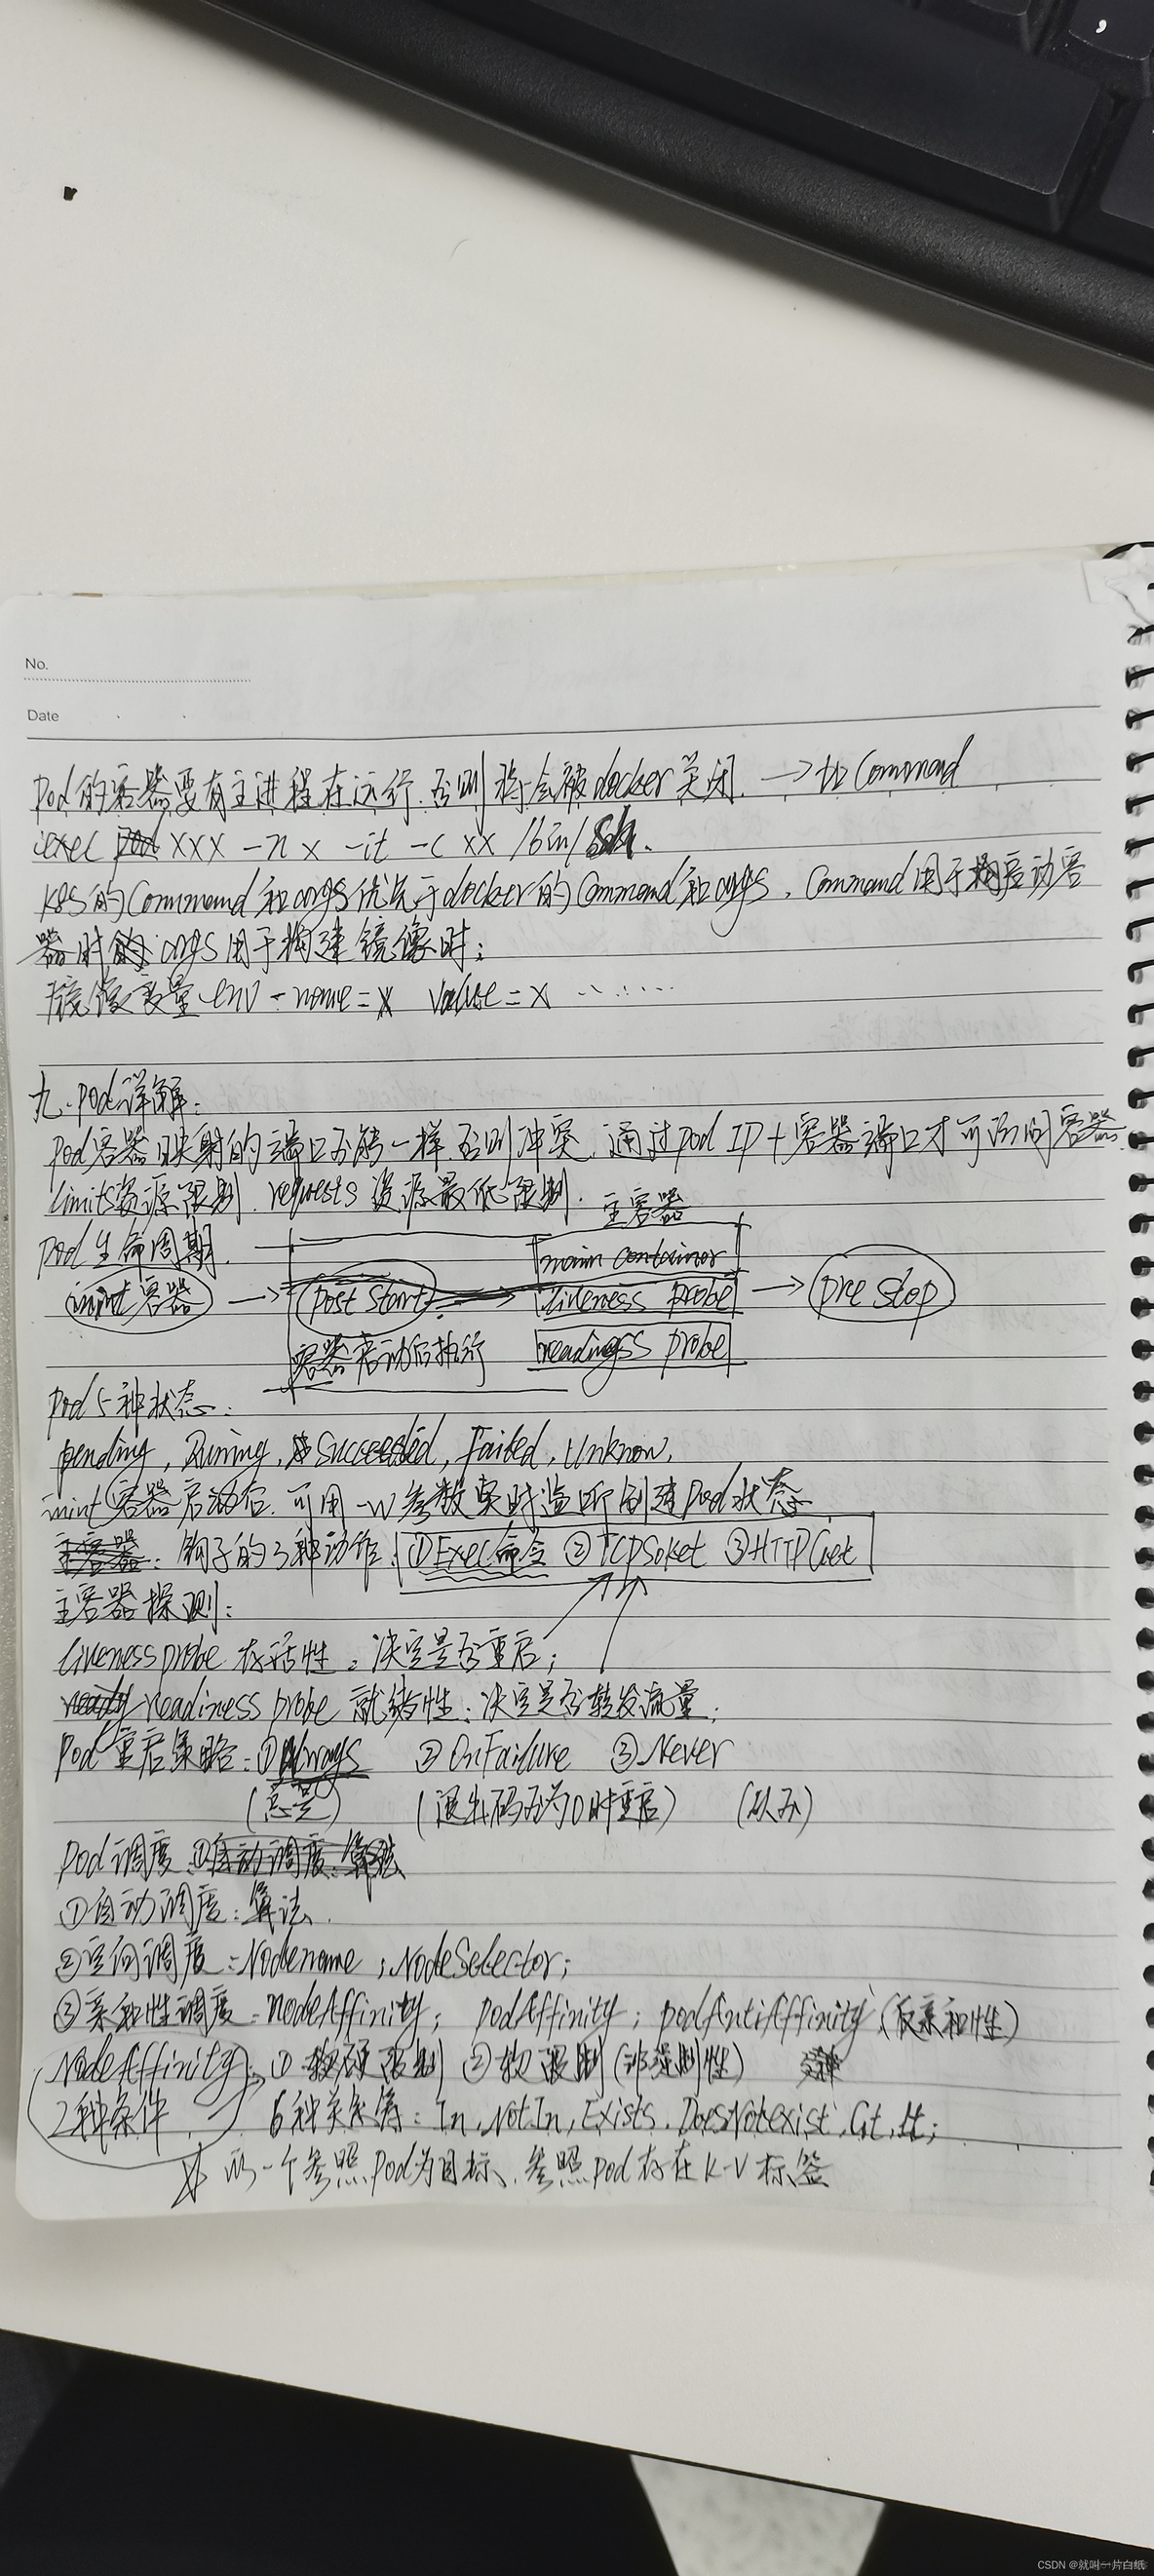 No.
Date
Pod的容器要有主进程在运行.否则将会被docker关闭. →加Command
exec xxx -n x -it -c xx /bin/sh.
K8S的Command和args优先于docker的Command和args，Command用于启动容
器时 args用于构建镜像时;
env -name=x value=x ······
九.Pod详解:
Pod容器映射的端口不能一样否则冲突.通过pod IP+容器端口才可访问容器
limits资源限制. requests资源最低限制.
主容器
Pod生命周期.
main container
inint容器 → post start → liveness probe → pre stop
容器启动后执行 readingss probe
Pod 5种状态:
pending, Runing, Succeeded, Failed, Unknow,
inint容器启动后.可用-w参数实时监听创建pod状态
钩子的3种动作.①Exec命令 ②TCPSoket ③HTTPGet
主容器探测:
liveness probe 存活性:决定是否重启;
readiness probe 就绪性:决定是否转发流量;
Pod重启策略:①Always ②OnFailure ③Never
(总是) (退出码不为0时重启) (从不)
Pod调度
①自动调度:算法.
②定向调度:Nodename;NodeSelector;
③亲和性调度:nodeAffinity; podAffinity; podAntiAffinity(反亲和性)
NodeAffinity: ① 硬限制 ②软限制
2种条件 6种关系符:In,NotIn,Exists.DoesNotexist,Gt,Lt;
一个参照Pod为目标、参照pod存在K-V标签
CSDN @就叫一片白纸